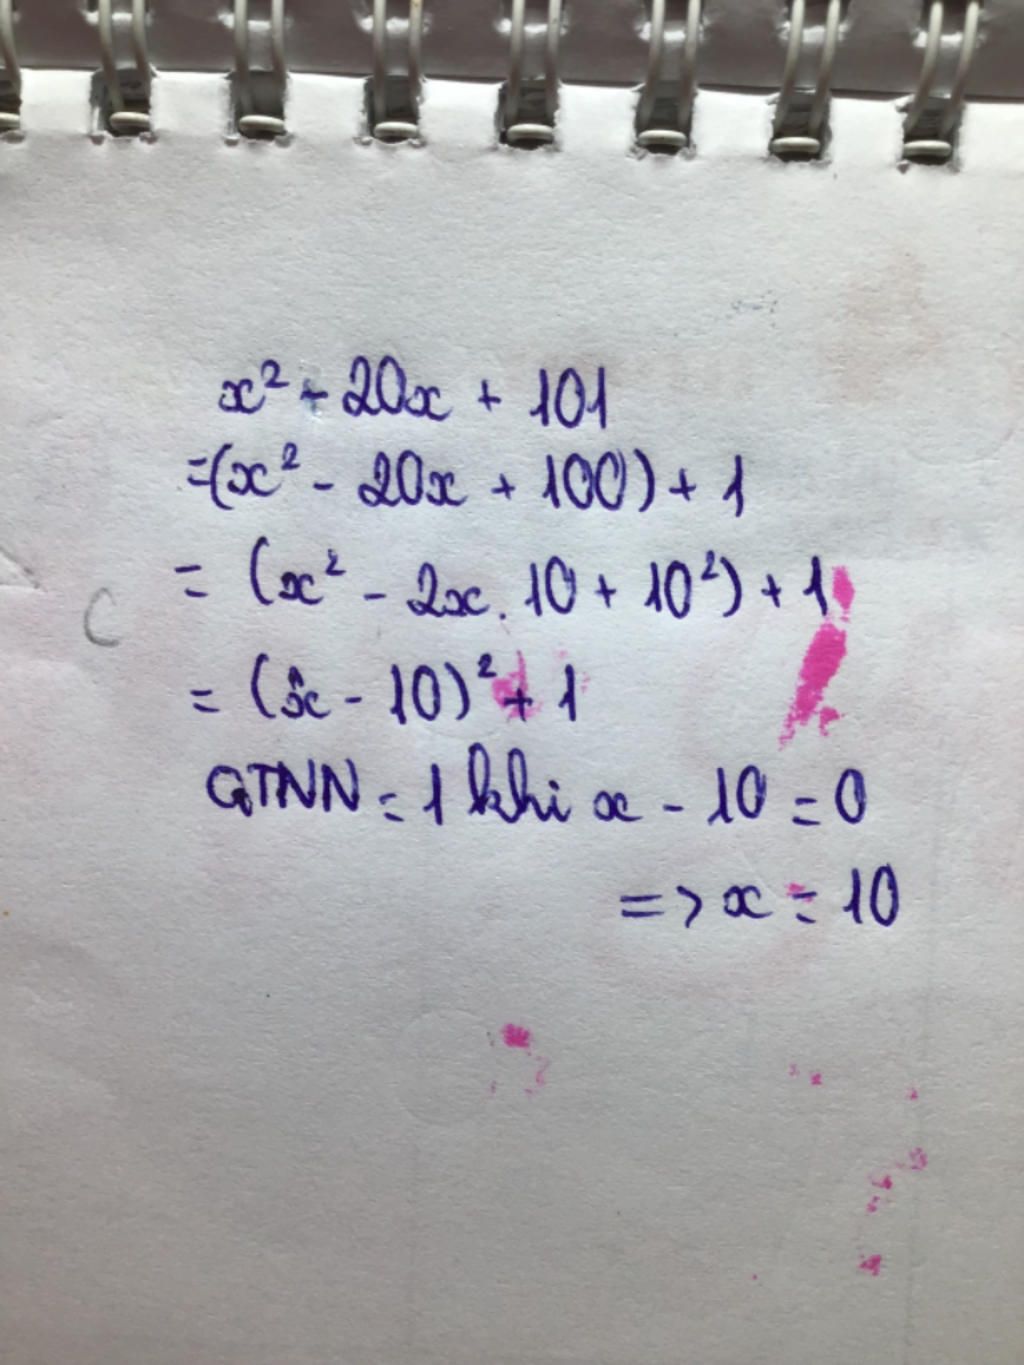 x² - 20x + 101
=(x² - 20x + 100) + 1
= (x² - 2x. 10 + 10²) + 1
= (x - 10)² + 1
GTNN = 1 khi x - 10 = 0
=> x = 10
C